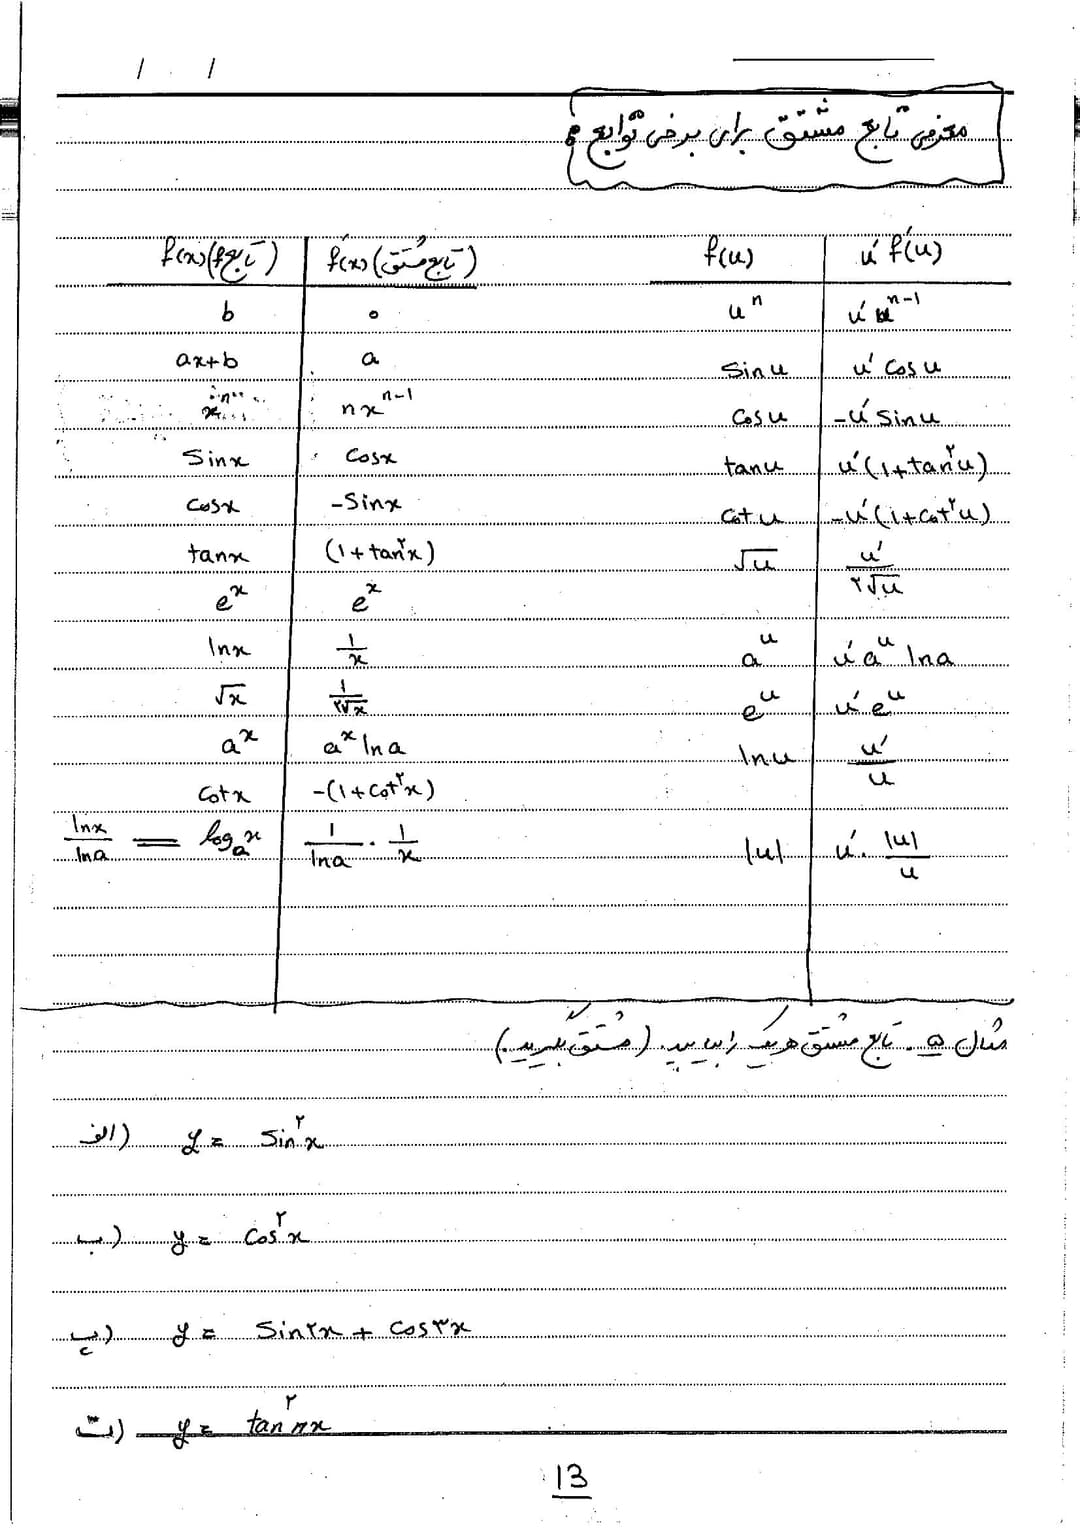 / /
معرفی تابع مشتق برای برخی توابع:
f(x) (تابع f) | f′(x) (تابع مشتق) | f(u) | u′ f′(u)
b | ۰ | uⁿ | u′ uⁿ⁻¹
ax+b | a | Sin u | u′ Cos u
xⁿ | nxⁿ⁻¹ | Cos u | -u′ Sin u
Sinx | Cosx | tan u | u′(1+tan²u)
Cosx | -Sinx | Cot u | -u′(1+Cot²u)
tanx | (1+tan²x) | √u | u′/۲√u
eˣ | eˣ | aᵘ | u′ aᵘ lna
lnx | 1/x | eᵘ | u′ eᵘ
√x | 1/۲√x | ln u | u′/u
aˣ | aˣ lna | |u| | u′ . |u|/u
Cotx | -(1+Cot²x)
lnx/lna = logₐx | 1/lna . 1/x
مثال ۵. تابع مشتق هریک را بیابید. (مشتق بگیرید.)
الف) y = Sin²x
ب) y = Cos²x
پ) y = Sin۲x + Cos۳x
ت) y = tan²πx
13